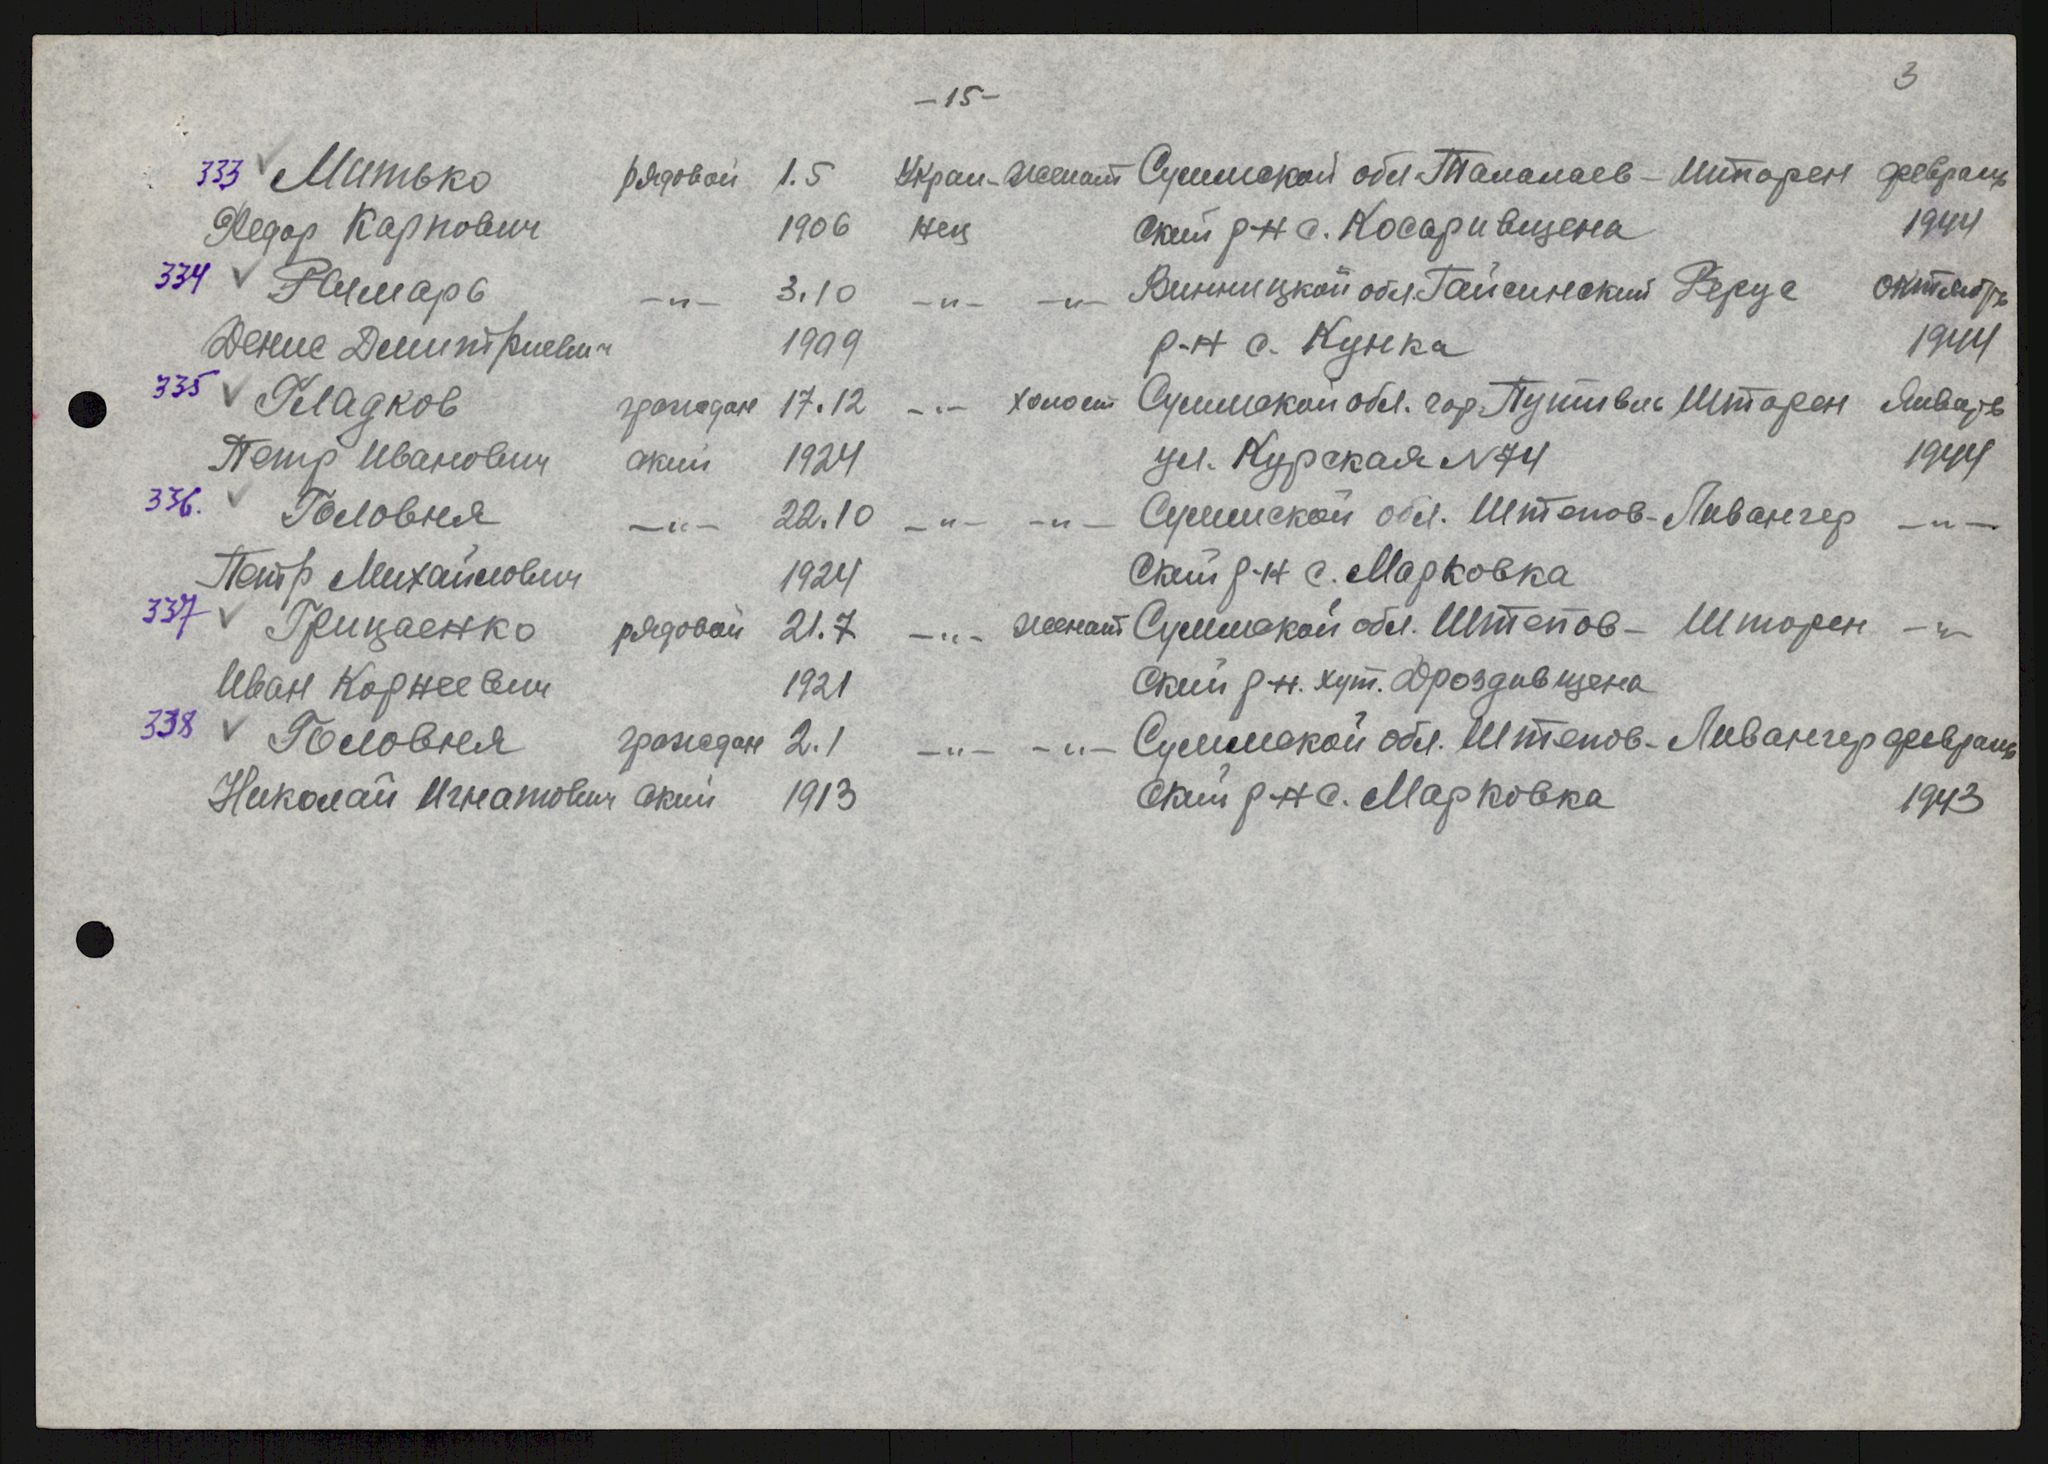 3
-15-
333 Митько рядовой 1.5 Украи- женат Суммской обл. Талалаев- Шторен февраль
Федор Карпович 1906 нец ский р-н с. Косаривщена 1944
334 Рымарь -"- 3.10 -"- -"- Винницкой обл. Гайсинский Рерус октябрь
Денис Дмитриевич 1909 р-н с. Кунка 1944
335 Гладков граждан 17.12 -"- холост Суммской обл. гор. Путивль Шторен Январь
Петр Иванович ский 1924 ул. Курская N 74 1944
336. Головня -"- 22.10 -"- -"- Суммской обл. Штепов- Ливангер -"-
Петр Михайлович 1924 ский р-н с. Марковка
337 Грицаенко рядовой 21.7 -"- женат Суммской обл. Штепов- Шторен -"-
Иван Корнеевич 1921 ский р-н. хут. Дроздивщена
338 Головня граждан 2.1 -"- -"- Суммской обл. Штепов- Ливангер февраль
Николай Игнатович ский 1913 ский р-н с. Марковка 1943